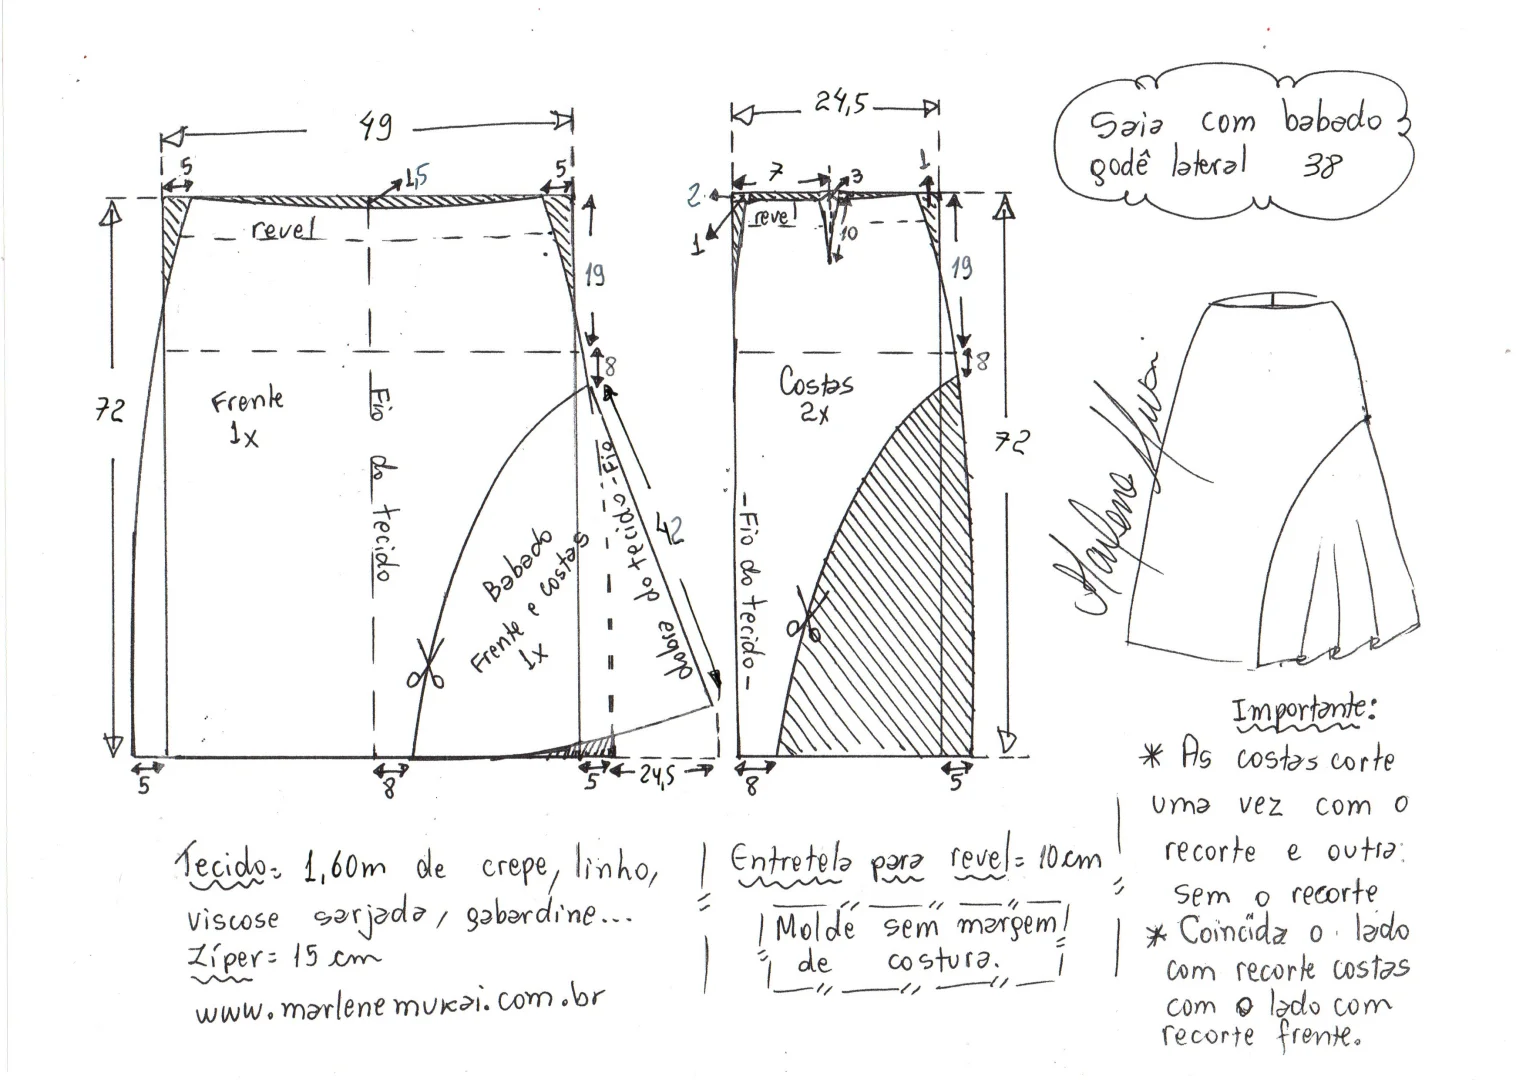 Saia com babado
godê lateral 38
49
5
1,5
5
revel
19
8
72
Frente
1x
Fio do tecido
Babado
Frente e costas
1x
Fio do tecido
dobra
42
5
8
5
24,5
24,5
7
3
1
2
1
revel
10
19
8
Costas
2x
72
Fio do tecido
8
5
Marlene Mukai
Tecido= 1,60m de crepe, linho,
viscose sarjada, gabardine...
Zíper= 15 cm
www.marlenemukai.com.br
Entretela para revel= 10cm
Molde sem margem
de costura.
Importante:
* As costas corte
uma vez com o
recorte e outra
sem o recorte
* Coincida o lado
com recorte costas
com o lado com
recorte frente.